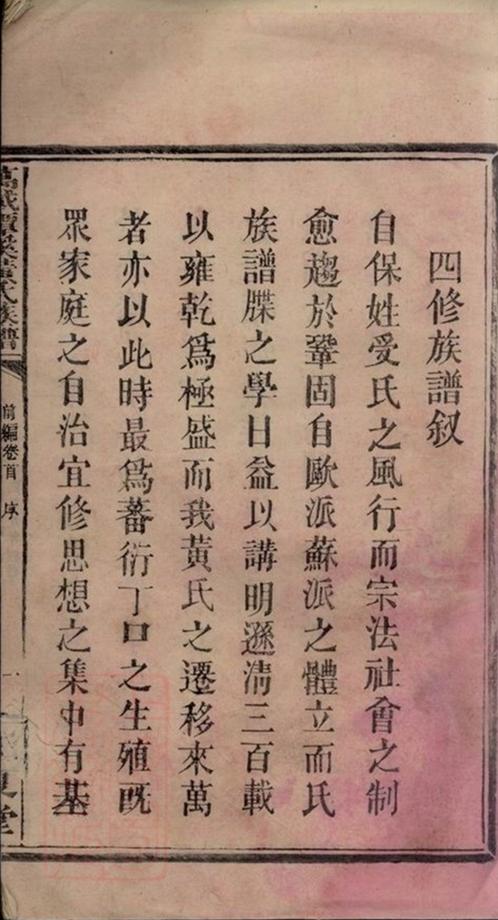 四修族譜叙
自保姓受氏之風行而宗法社會之制
愈趨於鞏固自歐派蘇派之體立而氏
族譜牒之學日益以講明遜清三百載
以雍乾爲極盛而我黃氏之遷移來萬
者亦以此時最爲蕃衍丁口之生殖既
眾家庭之自治宜修思想之集中有基
氏族譜
前編卷首
序
一
堂